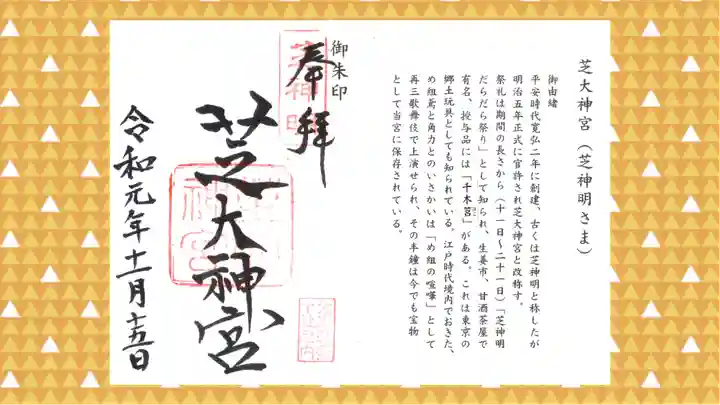 芝大神宮(芝神明さま)
御由緒
平安時代寛弘二年に創建、古くは芝神明と称したが
明治五年正式に官許され芝大神宮と改称す。
祭礼は期間の長さから(十一日~二十一日)「芝神明
だらだら祭り」として知られ、生姜市、甘酒茶屋で
有名、授与品には「千木筥」がある。これは東京の
郷土玩具としても知られている。江戸時代境内でおきた、
め組鳶と角力とのいさかいは「め組の喧嘩」として
再三歌舞伎で上演せられ、その半鐘は今でも宝物
として当宮に保存されている。
御朱印
奉拝
芝神明
芝大神宮
令和元年十一月十五日